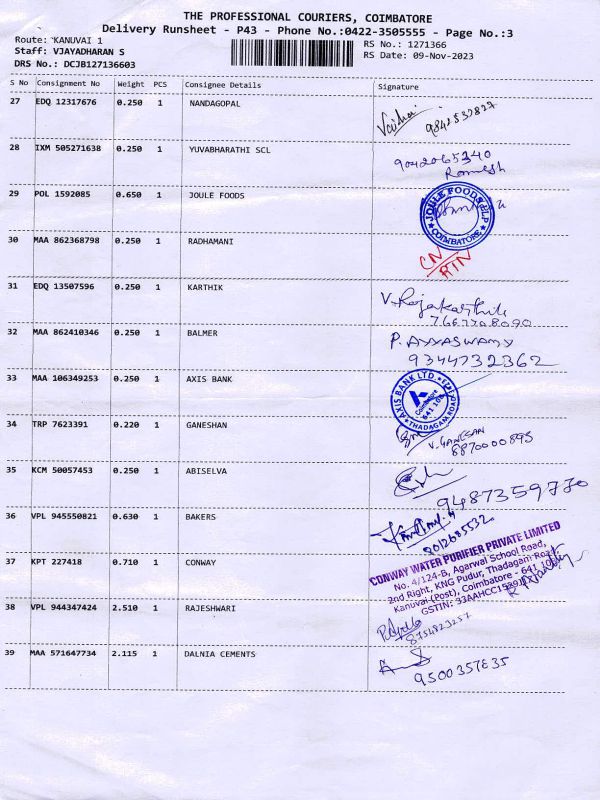 THE PROFESSIONAL COURIERS, COIMBATORE
Delivery Runsheet - P43 - Phone No.:0422-3505555 - Page No.:3
Route: KANUVAI 1
RS No.: 1271366
Staff: VJAYADHARAN S
RS Date: 09-Nov-2023
DRS No.: DCJB127136603
S No Consignment No Weight PCS Consignee Details Signature
27 EDQ 12317676 0.250 1 NANDAGOPAL
28 IXM 505271638 0.250 1 YUVABHARATHI SCL
9042065340
Ramesh
29 POL 1592085 0.650 1 JOULE FOODS
JOULE FOODS LLP
COIMBATORE
30 MAA 862368798 0.250 1 RADHAMANI
CN
RTN
31 EDQ 13507596 0.250 1 KARTHIK
V. Rajakarthik
32 MAA 862410346 0.250 1 BALMER
P. AYYASWAMY
9344732362
33 MAA 106349253 0.250 1 AXIS BANK
AXIS BANK LTD.
Coimbatore
641 108
THADAGAM ROAD
34 TRP 7623391 0.220 1 GANESHAN
V. GANESAN
8870000893
35 KCM 50057453 0.250 1 ABISELVA
9487359770
36 VPL 945550821 0.630 1 BAKERS
8012685532
37 KPT 227418 0.710 1 CONWAY
CONWAY WATER PURIFIER PRIVATE LIMITED
No. 4/124-B, Agarwal School Road,
2nd Right, KNG Pudur, Thadagam Road,
Kanuvai (Post), Coimbatore - 641 108
GSTIN:
38 VPL 944347424 2.510 1 RAJESHWARI
8754823257
39 MAA 571647734 2.115 1 DALNIA CEMENTS
9500357835